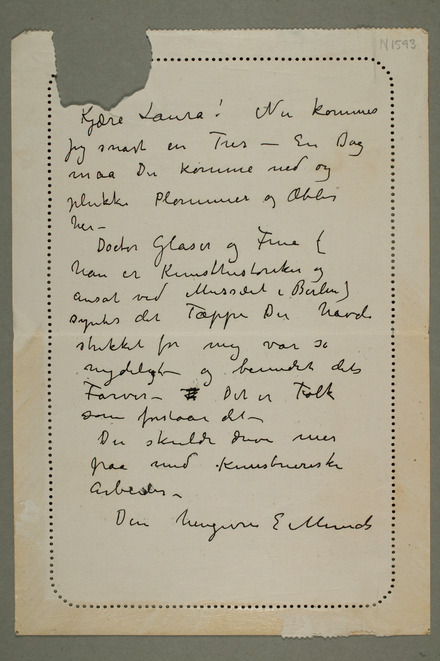 N 1593
Kjære Laura! Nu kommer
jeg snart en Tur — En Dag
maa Du komme ned og
plukke Plommer og Æbler
her —
Doctor Glaser og Frue (
han er Kunsthistoriker og
ansat ved Musæet i Berlin)
syntes det Tæppe Du havde
strikket for mig var så
nydeligt og beundret dets
Farver — Det er Folk
som forstaar det —
Du skulde drive mer
paa med Kunstneriske
Arbeider —
Din hengivne E Munch